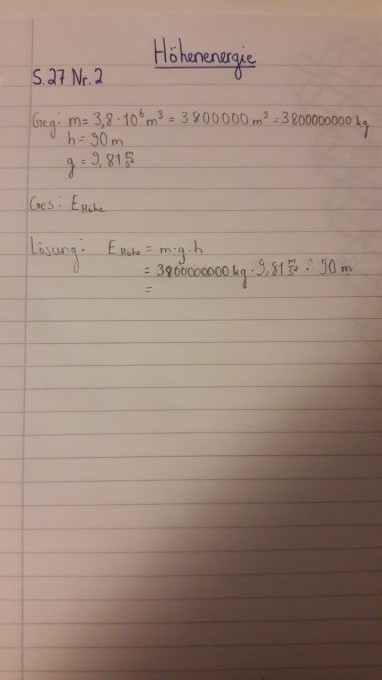 Höhenenergie
S. 27 Nr. 2
Geg: m = 3,8 · 10⁶ m³ = 3800000 m³ = 3800000000 kg
h = 90 m
g = 9,81 m/s²
Ges: E Höhe
Lösung: E Höhe = m · g · h
= 3800000000 kg · 9,81 m/s² · 90 m
=